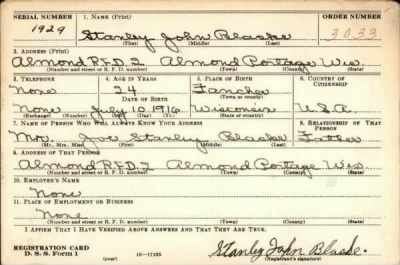 SERIAL NUMBER 1. NAME (Print) ORDER NUMBER
1929 Stanley John Blaske 3033
(First) (Middle) (Last)
2. ADDRESS (Print)
Almond R.F.D. 2 Almond Portage Wis.
(Number and street or R. F. D. number) (Town) (County) (State)
3. TELEPHONE 4. AGE IN YEARS 5. PLACE OF BIRTH 6. COUNTRY OF CITIZENSHIP
None 24 Fancher
DATE OF BIRTH (Town or county)
None July 10 1916 Wisconsin U.S.A.
(Exchange) (Number) (Mo.) (Day) (Yr.) (State or country)
7. NAME OF PERSON WHO WILL ALWAYS KNOW YOUR ADDRESS 8. RELATIONSHIP OF THAT PERSON
Mr. Joe Stanley Blaske Father
(Mr., Mrs., Miss) (First) (Middle) (Last)
9. ADDRESS OF THAT PERSON
Almond R.F.D. 2 Almond Portage Wis.
(Number and street or R. F. D. number) (Town) (County) (State)
10. EMPLOYER'S NAME
None
11. PLACE OF EMPLOYMENT OR BUSINESS
None
(Number and street or R. F. D. number) (Town) (County) (State)
I AFFIRM THAT I HAVE VERIFIED ABOVE ANSWERS AND THAT THEY ARE TRUE.
REGISTRATION CARD Stanley John Blaske.
D. S. S. Form 1 (over) 16—17105 (Registrant's signature)